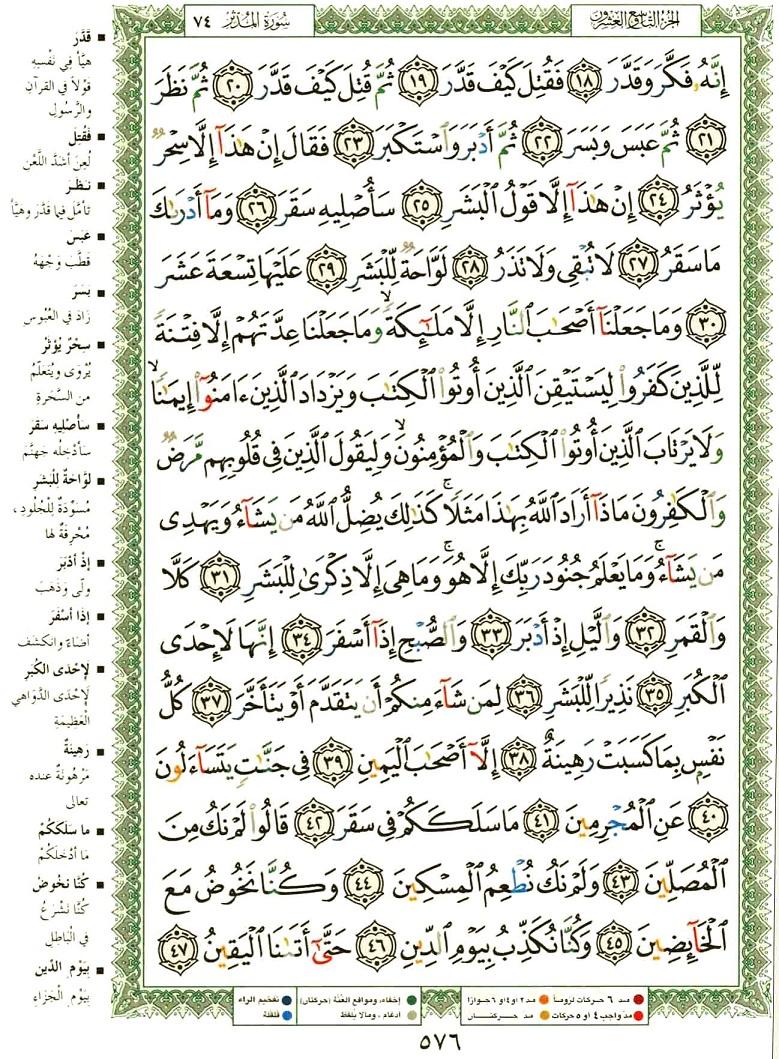 الجزء التاسع والعشرون
سُورَةُ المُدَّثِّر ٧٤
إِنَّهُۥ فَكَّرَ وَقَدَّرَ ١٨ فَقُتِلَ كَيْفَ قَدَّرَ ١٩ ثُمَّ قُتِلَ كَيْفَ قَدَّرَ ٢٠ ثُمَّ نَظَرَ
٢١ ثُمَّ عَبَسَ وَبَسَرَ ٢٢ ثُمَّ أَدْبَرَ وَٱسْتَكْبَرَ ٢٣ فَقَالَ إِنْ هَٰذَآ إِلَّا سِحْرٌ
يُؤْثَرُ ٢٤ إِنْ هَٰذَآ إِلَّا قَوْلُ ٱلْبَشَرِ ٢٥ سَأُصْلِيهِ سَقَرَ ٢٦ وَمَآ أَدْرَىٰكَ
مَا سَقَرُ ٢٧ لَا تُبْقِى وَلَا تَذَرُ ٢٨ لَوَّاحَةٌ لِّلْبَشَرِ ٢٩ عَلَيْهَا تِسْعَةَ عَشَرَ
٣٠ وَمَا جَعَلْنَآ أَصْحَٰبَ ٱلنَّارِ إِلَّا مَلَٰٓئِكَةً ۙ وَمَا جَعَلْنَا عِدَّتَهُمْ إِلَّا فِتْنَةً
لِّلَّذِينَ كَفَرُوا۟ لِيَسْتَيْقِنَ ٱلَّذِينَ أُوتُوا۟ ٱلْكِتَٰبَ وَيَزْدَادَ ٱلَّذِينَ ءَامَنُوٓا۟ إِيمَٰنًا ۙ
وَلَا يَرْتَابَ ٱلَّذِينَ أُوتُوا۟ ٱلْكِتَٰبَ وَٱلْمُؤْمِنُونَ ۙ وَلِيَقُولَ ٱلَّذِينَ فِى قُلُوبِهِم مَّرَضٌ
وَٱلْكَٰفِرُونَ مَاذَآ أَرَادَ ٱللَّهُ بِهَٰذَا مَثَلًا ۚ كَذَٰلِكَ يُضِلُّ ٱللَّهُ مَن يَشَآءُ وَيَهْدِى
مَن يَشَآءُ ۚ وَمَا يَعْلَمُ جُنُودَ رَبِّكَ إِلَّا هُوَ ۚ وَمَا هِىَ إِلَّا ذِكْرَىٰ لِلْبَشَرِ ٣١ كَلَّا
وَٱلْقَمَرِ ٣٢ وَٱلَّيْلِ إِذْ أَدْبَرَ ٣٣ وَٱلصُّبْحِ إِذَآ أَسْفَرَ ٣٤ إِنَّهَا لَإِحْدَى
ٱلْكُبَرِ ٣٥ نَذِيرًا لِّلْبَشَرِ ٣٦ لِمَن شَآءَ مِنكُمْ أَن يَتَقَدَّمَ أَوْ يَتَأَخَّرَ ٣٧ كُلُّ
نَفْسٍۭ بِمَا كَسَبَتْ رَهِينَةٌ ٣٨ إِلَّآ أَصْحَٰبَ ٱلْيَمِينِ ٣٩ فِى جَنَّٰتٍ يَتَسَآءَلُونَ
٤٠ عَنِ ٱلْمُجْرِمِينَ ٤١ مَا سَلَكَكُمْ فِى سَقَرَ ٤٢ قَالُوا۟ لَمْ نَكُ مِنَ
ٱلْمُصَلِّينَ ٤٣ وَلَمْ نَكُ نُطْعِمُ ٱلْمِسْكِينَ ٤٤ وَكُنَّا نَخُوضُ مَعَ
ٱلْخَآئِضِينَ ٤٥ وَكُنَّا نُكَذِّبُ بِيَوْمِ ٱلدِّينِ ٤٦ حَتَّىٰٓ أَتَىٰنَا ٱلْيَقِينُ ٤٧
▪ قَدَّرَ
هيَّأ في نَفْسِهِ
قَوْلاً في القرآنِ
والرَّسُولِ
▪ فَقُتِلَ
لُعِنَ أشَدَّ اللَّعْن
▪ نَظَرَ
تأمَّل فِيما قَدَّرَ وهيَّأ
▪ عَبَسَ
قَطَّبَ وَجْهَهُ
▪ بَسَرَ
زَادَ في العُبُوسِ
▪ سِحْرٌ يُؤْثَرُ
يُرْوَى ويُتَعَلَّمُ
من السَّحَرةِ
▪ سأُصْلِيهِ سَقَرَ
سَأُدْخِلُه جهنَّمَ
▪ لَوَّاحَةٌ لِلْبَشَرِ
مُسَوِّدَةٌ لِلْجُلُودِ،
مُحْرِقَةٌ لها
▪ إذْ أدْبَرَ
ولَّى وَذَهَبَ
▪ إذا أسْفَرَ
أضاءَ وانكشف
▪ لإحْدَى الكُبَرِ
لَإحْدَى الدَّوَاهي
العَظِيمَةِ
▪ رَهِينَةٌ
مَرْهُونَةٌ عنده
تعالى
▪ ما سَلَكَكُمْ
مَا أدْخَلَكُمْ
▪ كُنّا نَخُوضُ
كُنَّا نَشْرَعُ
في الْبَاطِلِ
▪ بِيَوْمِ الدِّين
بِيَوْمِ الْجَزَاءِ
مد ٦ حركات لزوماً مد ٢ او ٤ او ٦ جوازا إخفاء، ومواقع الغُنَّة (حركتان) تفخيم الراء
مد واجب ٤ او ٥ حركات مد حركتان ادغام، ومالا يلفظ قلقلة
٥٧٦